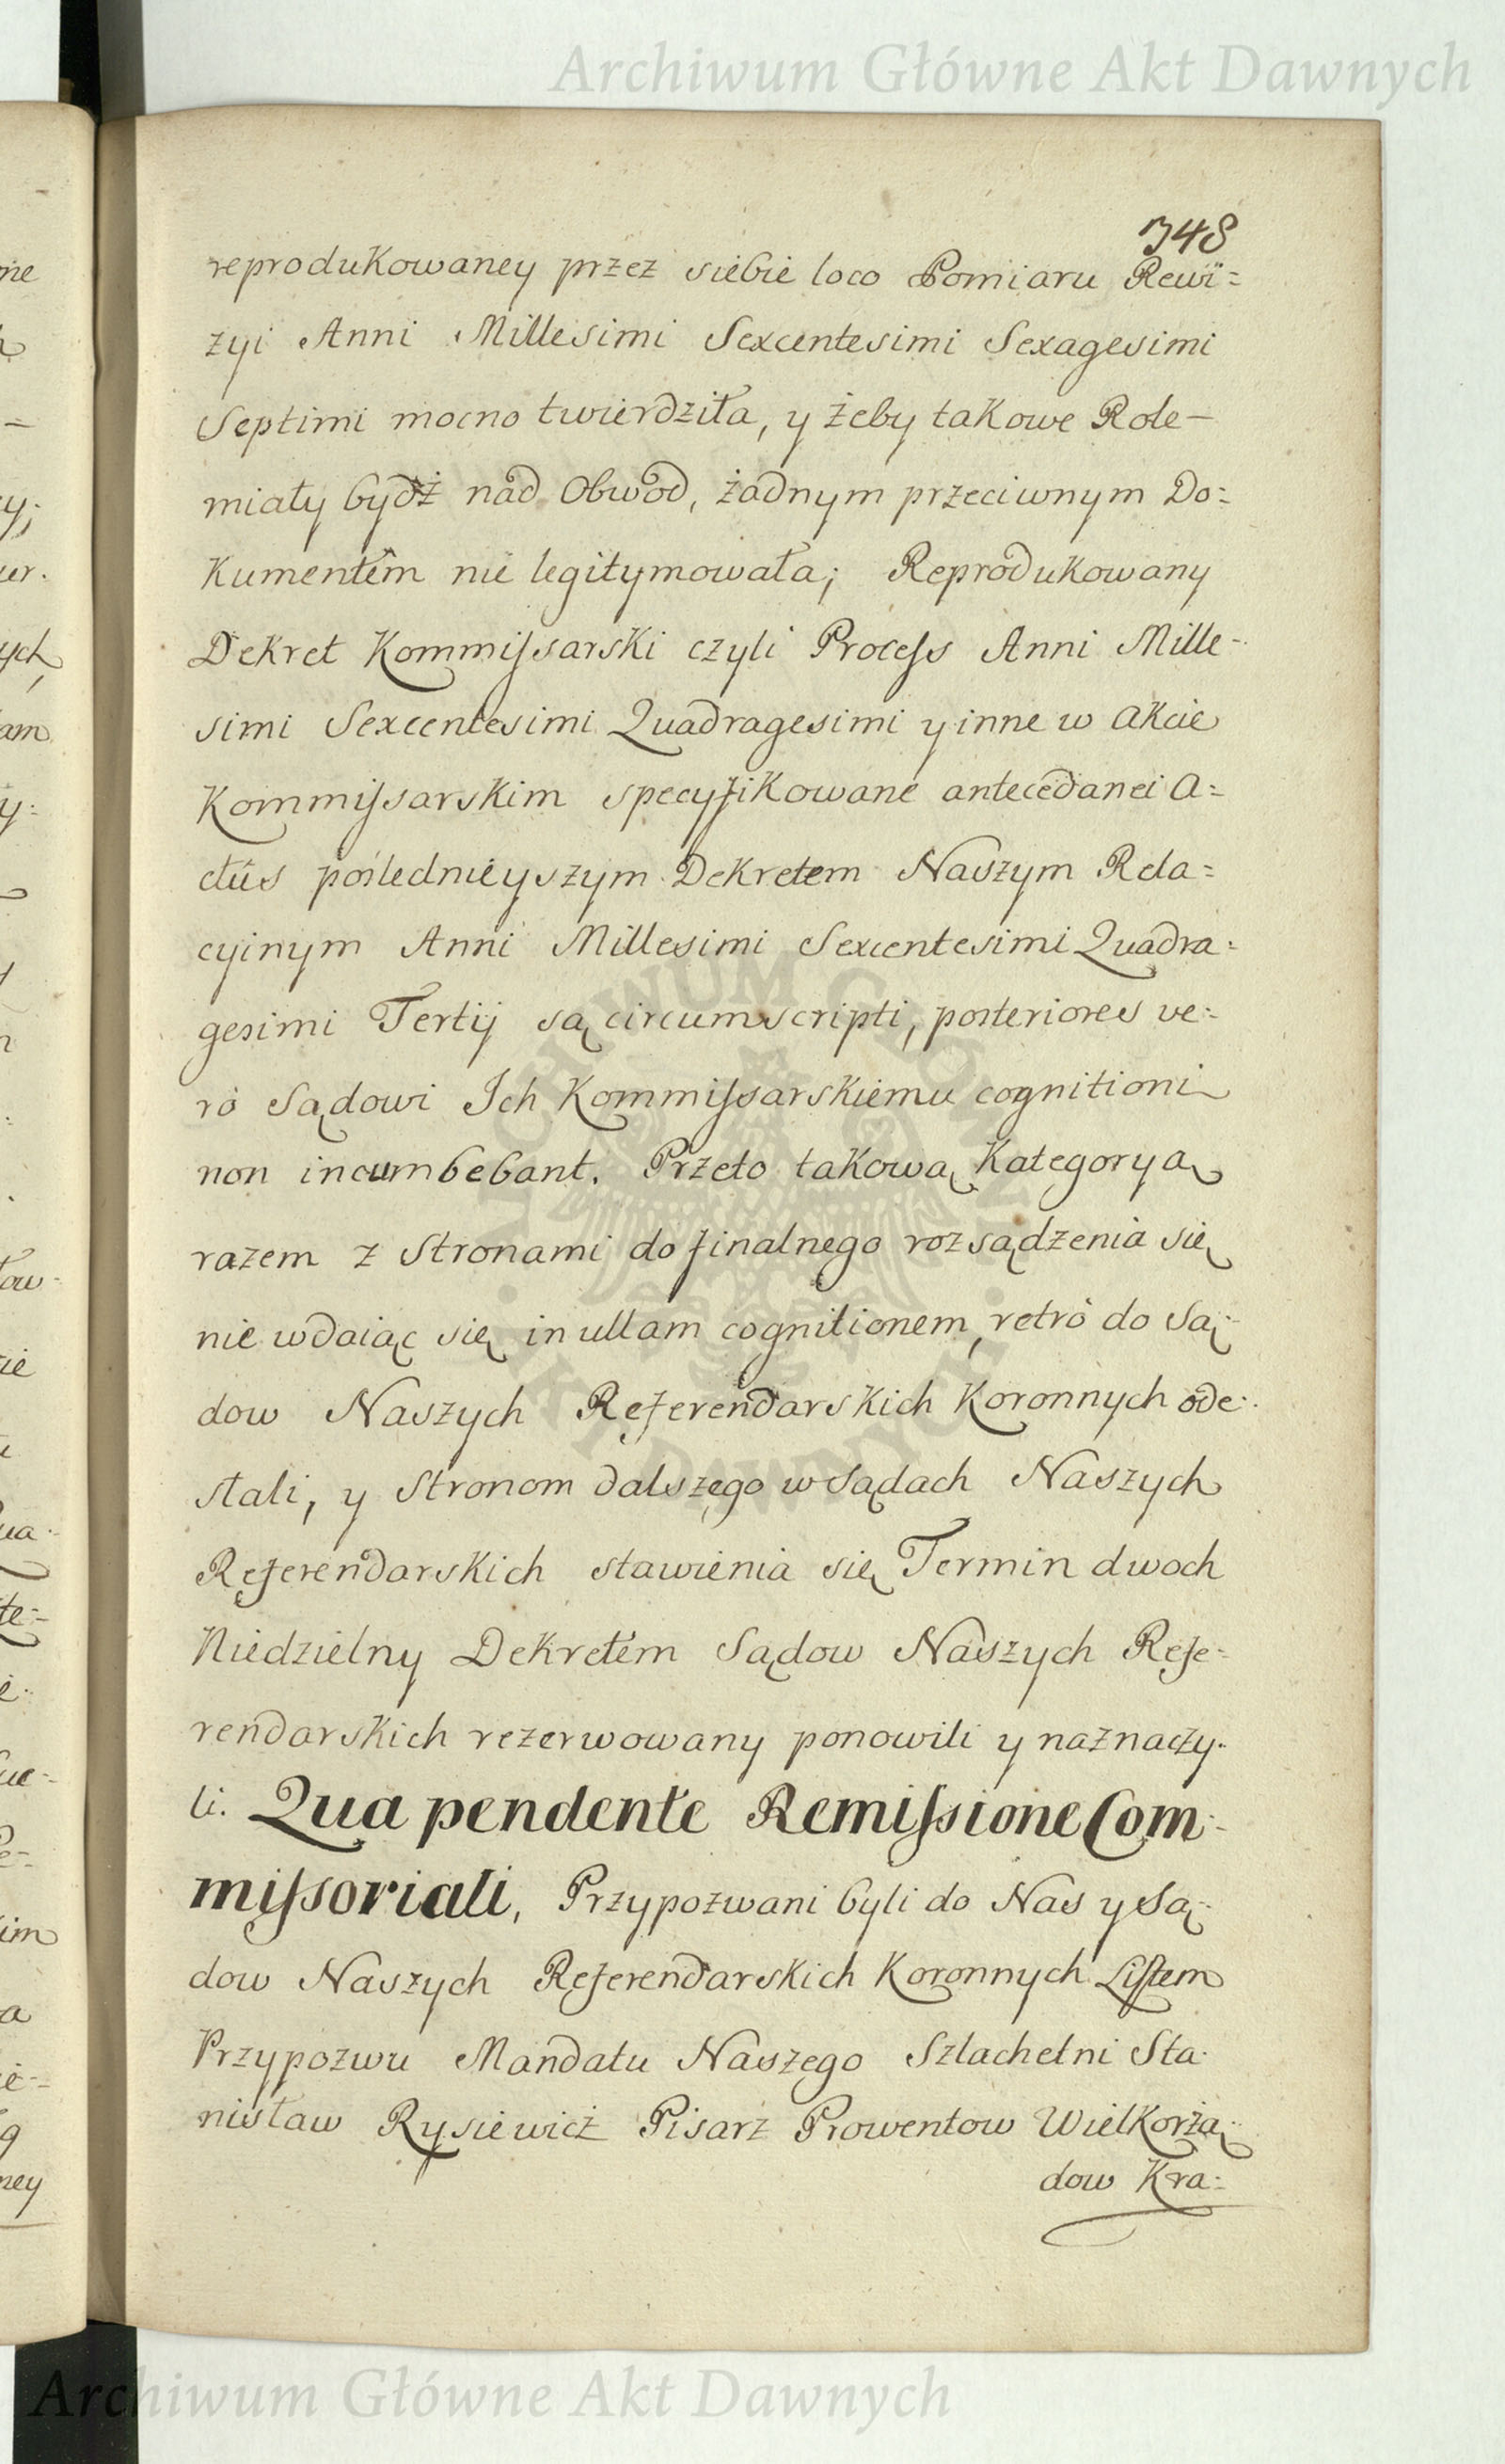 Archiwum Główne Akt Dawnych
348
reprodukowaney przez siebie loco Pomiaru Rewi=
zyi Anni Millesimi Sexcentesimi Sexagesimi
Septimi mocno twierdziła, y żeby takowe Role—
miały bydź nad Obwod, żadnym przeciwnym Do=
kumentem nie legitymowała; Reprodukowany
Dekret Kommissarski czyli Process Anni Mille-
simi Sexcentesimi Quadragesimi y inne w Akcie
Kommissarskim specyfikowane antecedanei A=
ctûs poślednieyszym Dekretem Naszym Rela=
cyinym Anni Millesimi Sexcentesimi Quadra=
gesimi Tertij są circumscripti, posteriores ve=
rò Sądowi Ich Kommissarskiemu cognitioni
non incumbebant. Przeto takową Kategoryą
razem z Stronami do finalnego rozsądzenia się
nie wdaiąc się in ullam cognitionem, retrò do Są-
dow Naszych Referendarskich Koronnych ode-
słali, y Stronom dalszego w Sądach Naszych
Referendarskich stawienia się Termin dwoch
Niedzielny Dekretem Sądow Naszych Refe=
rendarskich rezerwowany ponowili y naznaczy-
li. Qua pendente Remissione Com-
missoriali, Przypozwani byli do Nas y Są-
dow Naszych Referendarskich Koronnych Listem
Przypozwu Mandatu Naszego Szlachetni Sta-
nisław Rysiewicz Pisarz Prowentow Wielkorzą-
dow Kra=
Archiwum Główne Akt Dawnych